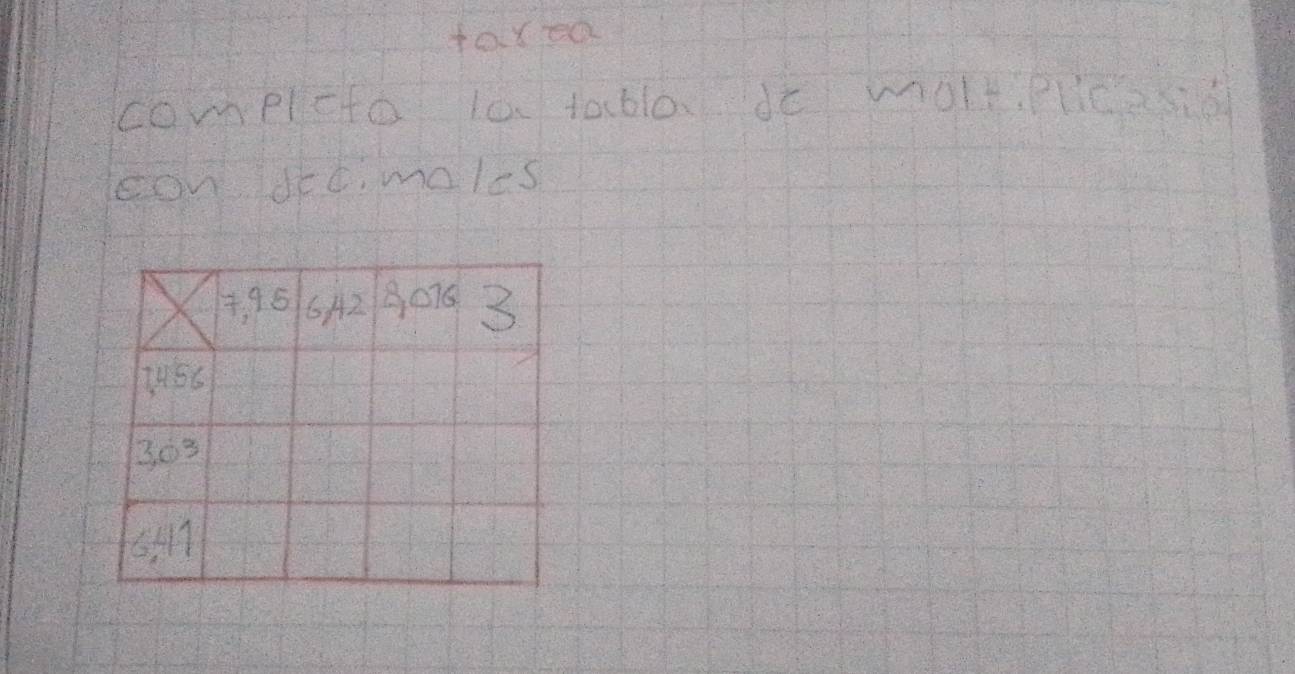 tarea
completa la tabla de moltiplicasió
con decimales
7,95 6,42 8,076 3
7,456
3,03
6,41